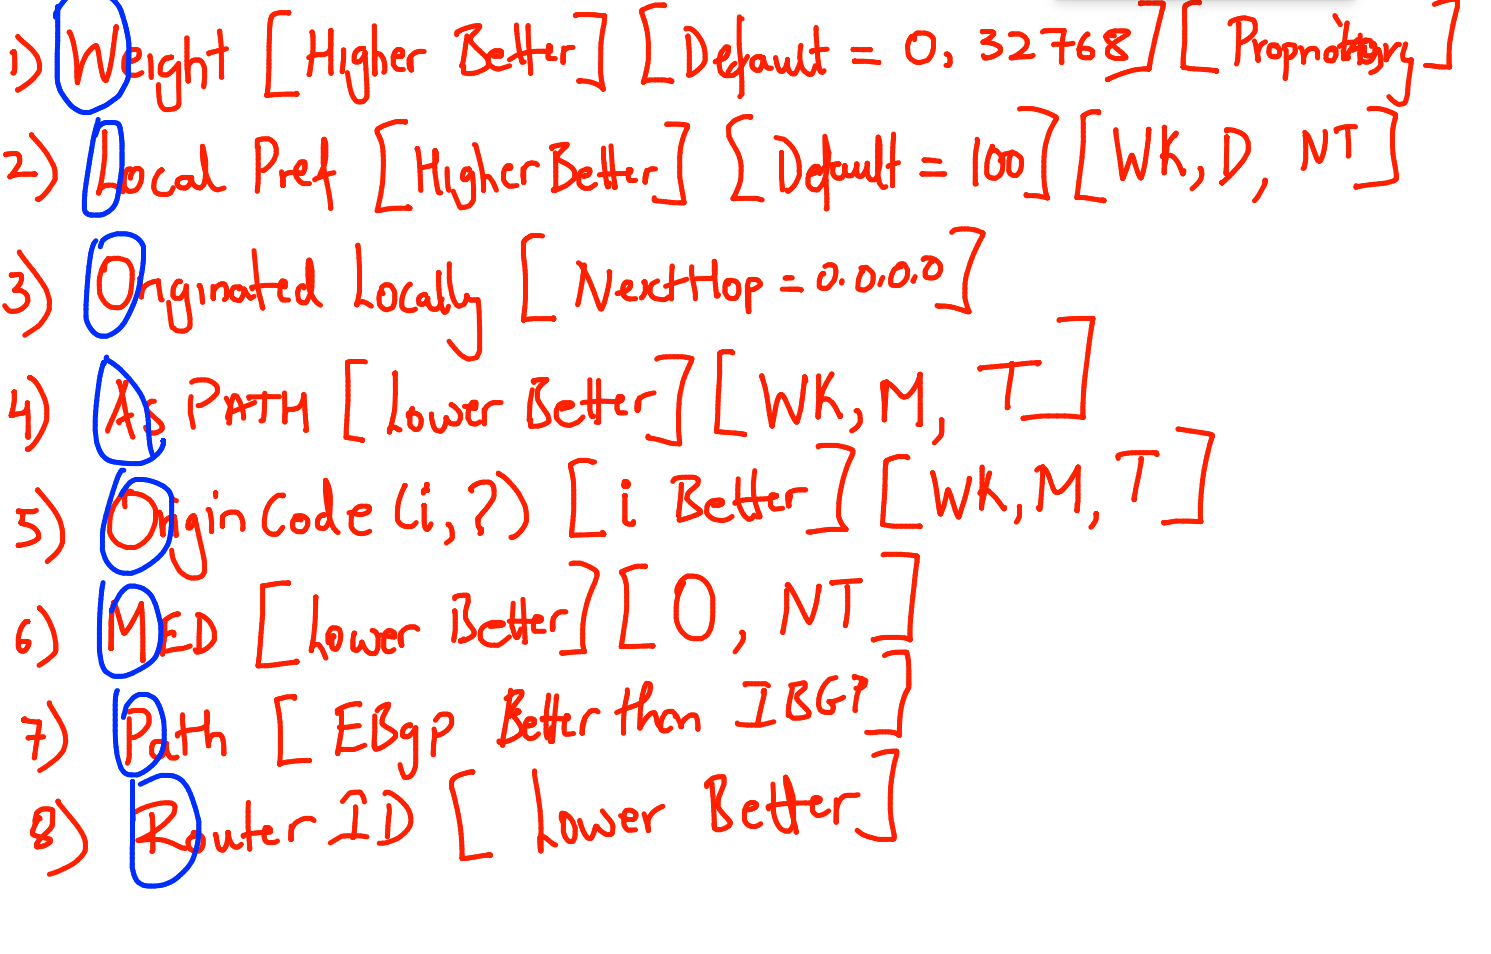 1) Weight [Higher Better] [Default = 0, 32768] [Propriotory]
2) Local Pref [Higher Better] [Default = 100] [WK, D, NT]
3) Originated Locally [Next Hop = 0.0.0.0]
4) As PATH [Lower Better] [WK, M, T]
5) Origin Code (i, ?) [i Better] [WK, M, T]
6) MED [Lower Better] [O, NT]
7) Path [EBgp Better than IBGP]
8) Router ID [Lower Better]